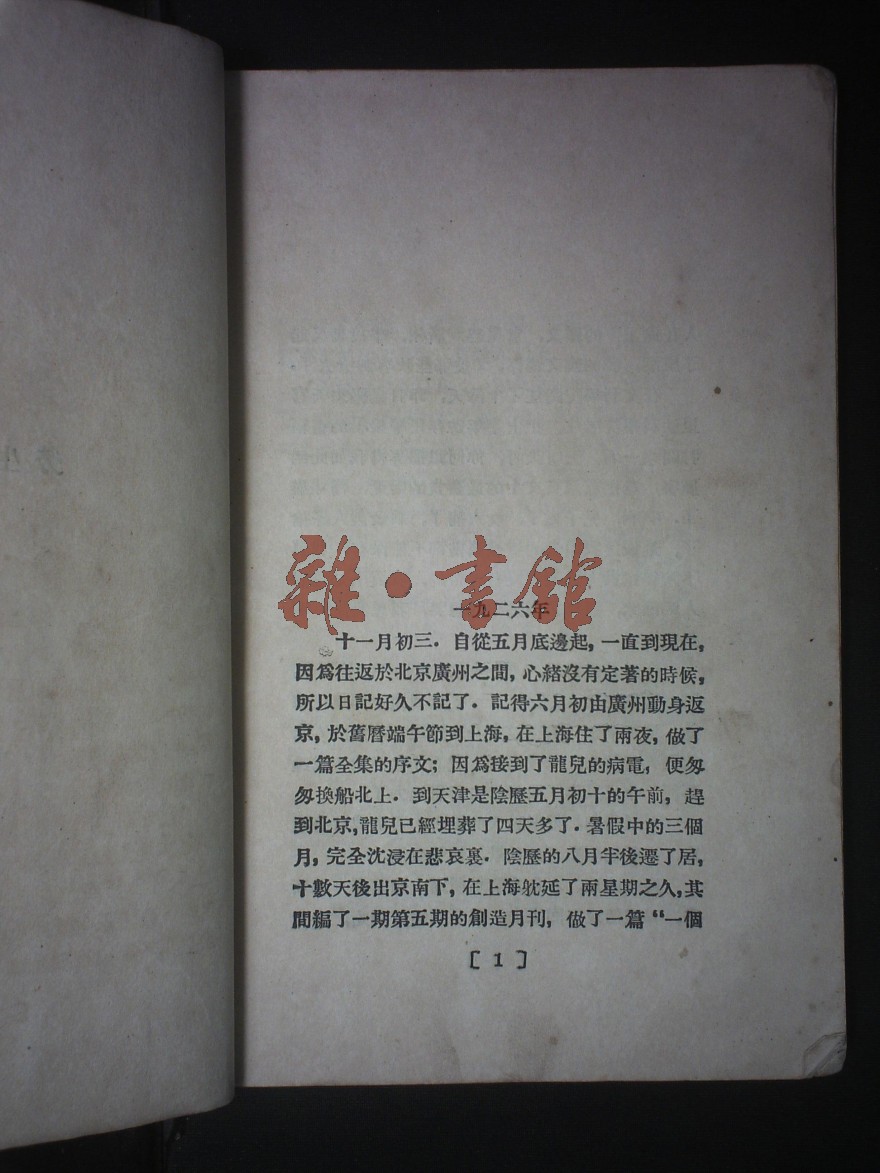 雜·書舘
一九二六年
十一月初三．自從五月底邊起，一直到現在，
因爲往返於北京廣州之間，心緒沒有定著的時候，
所以日記好久不記了．記得六月初由廣州動身返
京，於舊曆端午節到上海，在上海住了兩夜，做了
一篇全集的序文；因爲接到了龍兒的病電，便匆
匆換船北上．到天津是陰歷五月初十的午前，趕
到北京，龍兒已經埋葬了四天多了．暑假中的三個
月，完全沈浸在悲哀裏．陰歷的八月半後遷了居，
十數天後出京南下，在上海躭延了兩星期之久，其
間編了一期第五期的創造月刊，做了一篇“一個
[ 1 ]